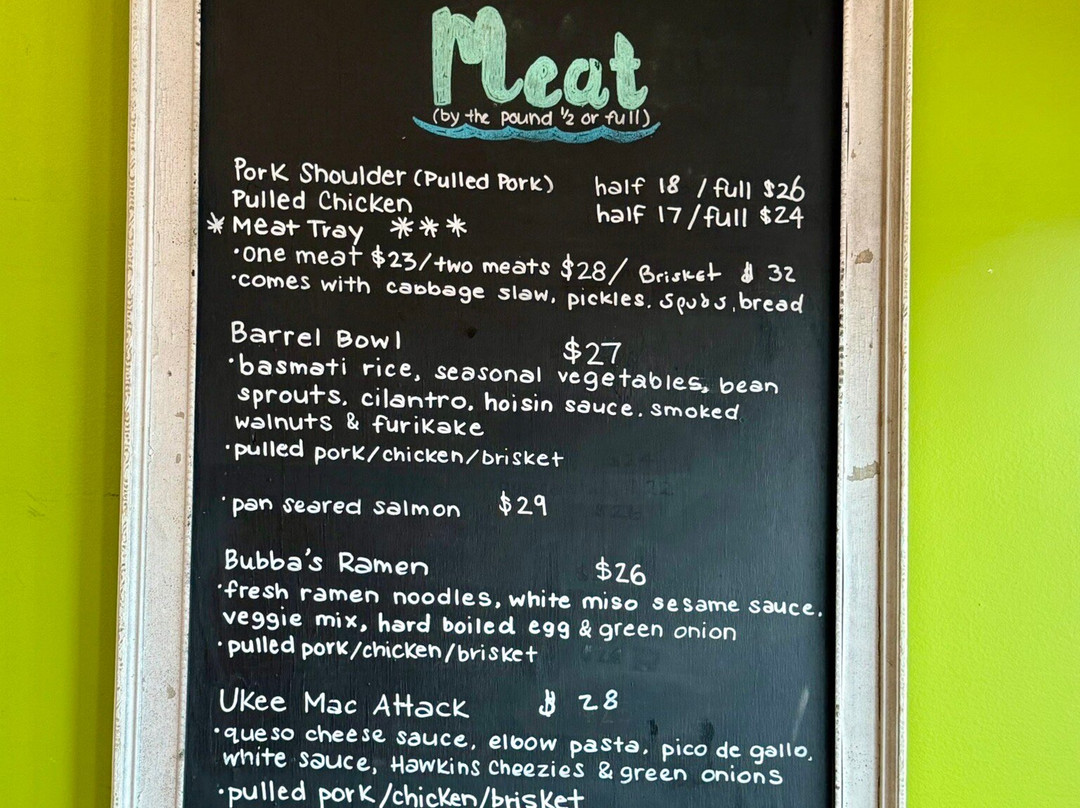 Meat
(by the pound ½ or full)
Pork Shoulder (Pulled Pork) half 18 / full $26
Pulled Chicken half 17/full $24
* Meat Tray ***
·one meat $23/two meats $28/ Brisket $ 32
·comes with cabbage slaw, pickles. spuds, bread
Barrel Bowl $27
·basmati rice, seasonal vegetables, bean
sprouts. cilantro. hoisin sauce. smoked
walnuts & furikake
·pulled pork/chicken/brisket
·pan seared salmon $29
Bubba's Ramen $26
·fresh ramen noodles, white miso sesame sauce.
veggie mix, hard boiled egg & green onion
·pulled pork/chicken/brisket
Ukee Mac Attack $ 28
·queso cheese sauce, elbow pasta, pico de gallo,
white sauce, Hawkins Cheezies & green onions
·pulled pork/chicken/brisket